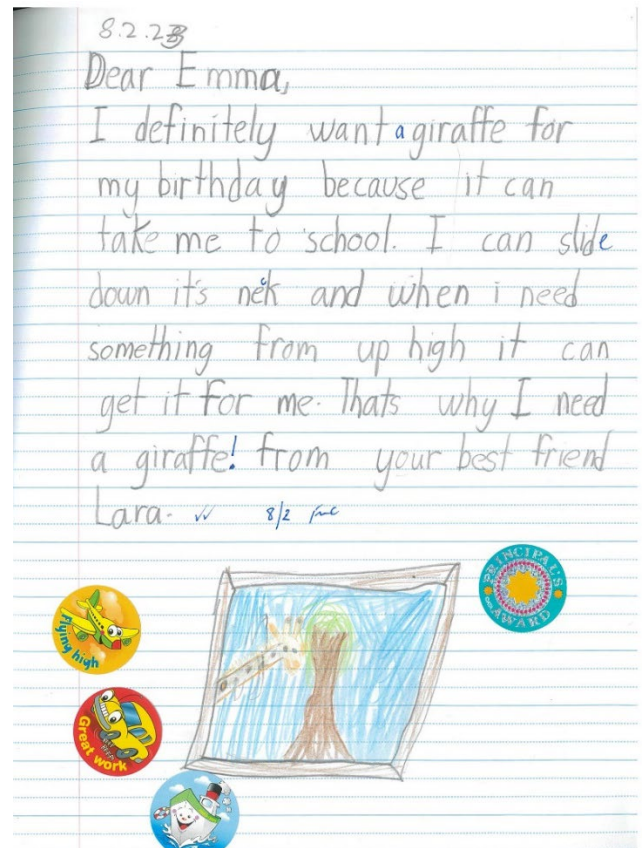 8.2.23
Dear Emma,
I definitely want a giraffe for
my birthday because it can
take me to school. I can slide
down it's nek and when i need
something from up high it can
get it for me. Thats why I need
a giraffe! from your best friend
Lara.
8/2
PRINCIPAL'S
AWARD
Flying high
Great work